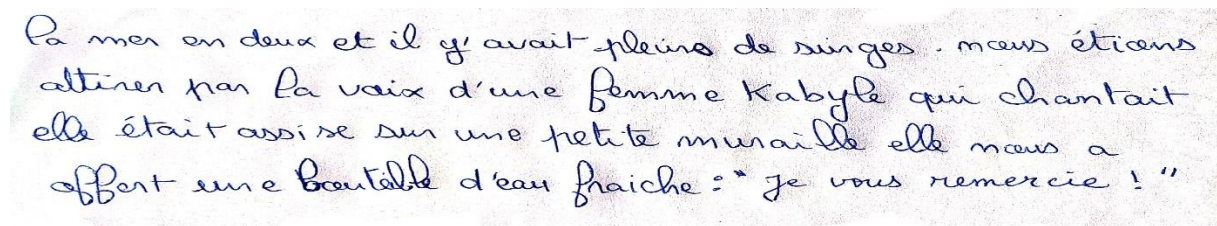 la mer en deux et il y' avait pleins de singes. nous étions
attirer par la voix d'une femme Kabyle qui chantait
elle était assise sur une petite muraille elle nous a
offert une bouteille d'eau fraiche : " Je vous remercie ! "